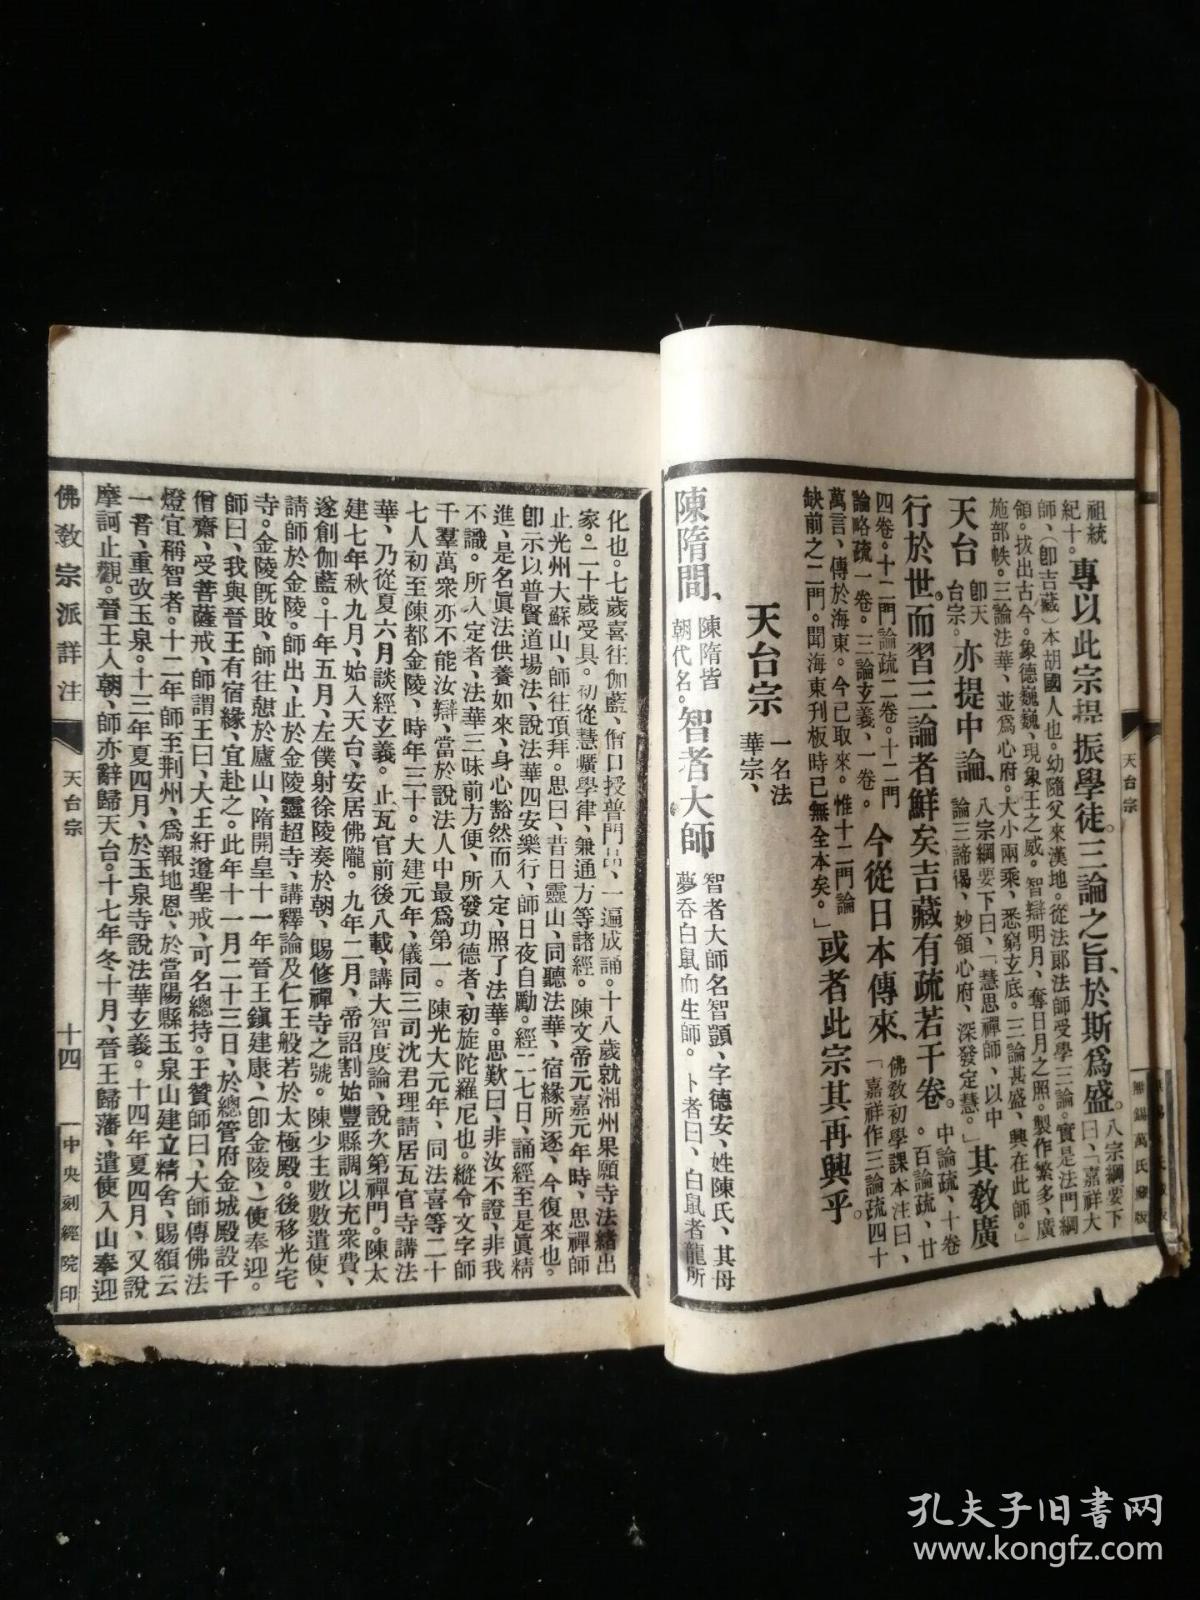 祖統
紀十。專以此宗提振學徒。三論之旨、於斯爲盛。八宗綱要下
曰、「嘉祥大
師、(卽吉藏)本胡國人也。幼隨父來漢地。從法郞法師受學三論。實是法門綱
領。拔出古今。象德巍巍、現象王之威。智辯明月、奪日月之照。製作繁多、廣
施部帙。三論法華、並爲心府。大小兩乘、悉窮玄底。三論甚盛、興在此師。」
天台卽天
台宗。亦提中論、八宗綱要下曰、「慧思禪師、以中
論三諦偈、妙領心府、深發定慧。」其敎廣
行於世。而習三論者鮮矣。吉藏有疏若干卷。中論疏、十卷
。百論疏、廿
四卷。十二門論疏二卷。十二門
論略疏一卷。三論玄義、一卷。今從日本傳來、佛敎初學課本注曰、
「嘉祥作三論疏四十
萬言、傳於海東。今已取來。惟十二門論
缺前之二門。聞海東刋板時已無全本矣。」或者此宗其再興乎。
天台宗一名法
華宗、
陳隋間、陳隋皆
朝代名。智者大師智者大師名智顗、字德安、姓陳氏、其母
夢吞白鼠而生師。卜者曰、白鼠者龍所
天台宗
無錫萬氏廠版
化也。七歲喜往伽藍、僧口授普門品、一遍成誦。十八歲就湘州果願寺法緒出
家。二十歲受具。初從慧曠學律、兼通方等諸經。陳文帝元嘉元年時、思禪師
止光州大蘇山、師往頂拜。思曰、昔日靈山、同聽法華、宿緣所逐、今復來也。
卽示以普賢道場法、說法華四安樂行、師日夜自勵。經二七日、誦經至是眞精
進、是名眞法供養如來、身心豁然而入定、照了法華。思歎曰、非汝不證、非我
不識。所入定者、法華三昧前方便、所發功德者、初旋陀羅尼也。縱令文字師
千羣萬衆亦不能汝辯、當於說法人中最爲第一。陳光大元年、同法喜等二十
七人初至陳都金陵、時年三十。大建元年、儀同三司沈君理請居瓦官寺講法
華、乃從夏六月談經玄義。止瓦官前後八載、講大智度論、說次第禪門。陳太
建七年秋九月、始入天台、安居佛隴。九年二月、帝詔割始豐縣調以充衆費、
遂創伽藍。十年五月、左僕射徐陵奏於朝、賜修禪寺之號。陳少主數數遣使、
請師於金陵。師出、止於金陵靈超寺、講釋論及仁王般若於太極殿。後移光宅
寺。金陵旣敗、師往憇於廬山、隋開皇十一年晉王鎭建康、(卽金陵)使奉迎。
師曰、我與晉王有宿緣、宜赴之。此年十一月二十三日、於總管府金城殿設千
僧齋、受菩薩戒、師謂王曰、大王紆遵聖戒、可名總持。王贊師曰、大師傳佛法
燈宜稱智者。十二年師至荆州、爲報地恩、於當陽縣玉泉山建立精舍、賜額云
一音、重改玉泉。十三年夏四月、於玉泉寺說法華玄義。十四年夏四月、又說
摩訶止觀。晉王入朝、師亦辭歸天台。十七年冬十月、晉王歸藩、遣使入山奉迎
佛敎宗派詳注
天台宗
十四
中央刻經院印
孔夫子旧书网
www.kongfz.com